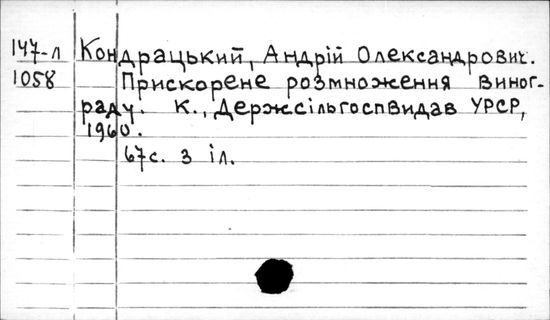 147-л Кондрацький, Андрій Олександрович.
1058 Прискорене розмноження виног-
раду. К., Держсільгоспвидав УРСР,
1960.
67с. з іл.